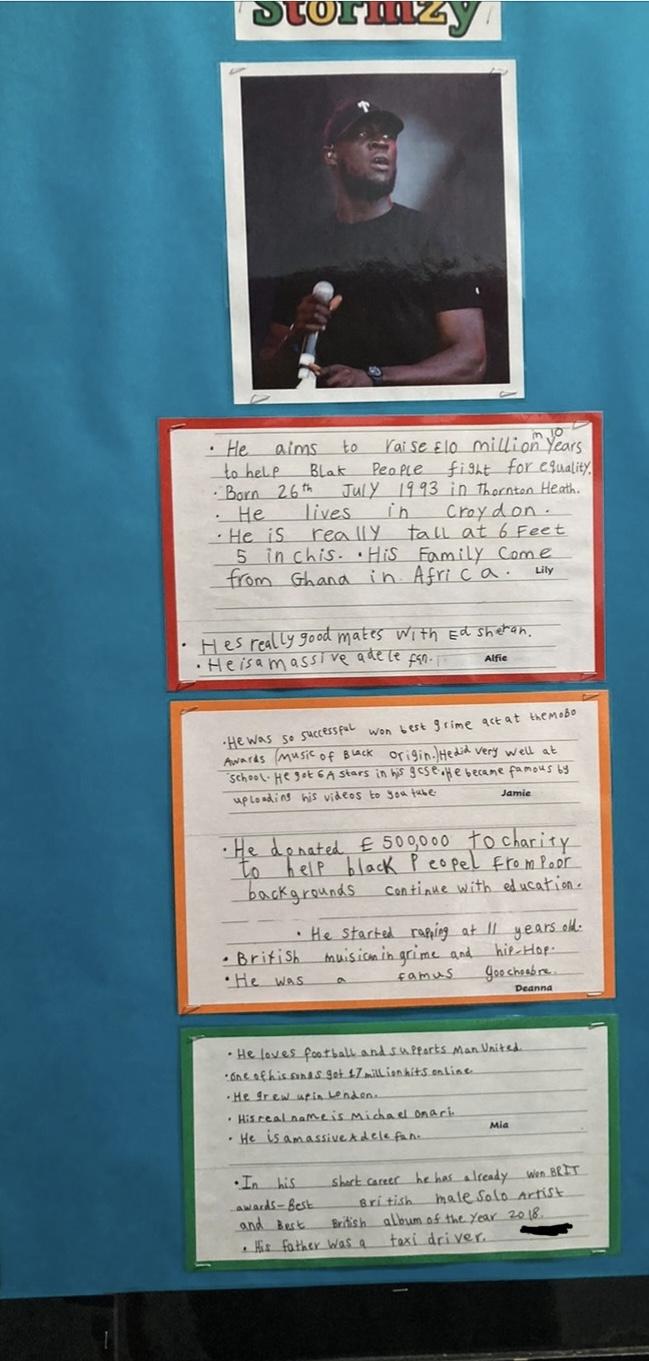 Stormzy
T
· He aims to raise £10 million in 10 years
to help Blak People fight for equality.
· Born 26th July 1993 in Thornton Heath.
· He lives in Croydon.
· He is really tall at 6 Feet
5 inchis. · His Family Come
from Ghana in Africa. Lily
· Hes really good mates with Ed sheran.
· He is a massive adele fan. Alfie
· He was so successful won best grime act at the MOBO
Awards (Music of Black Origin.) He did very well at
school. He got 6 A stars in his gcse. He became famous by
uploading his videos to you tube. Jamie
· He donated £500,000 to charity
to help black Peopel from Poor
backgrounds continue with education.
· He started rapping at 11 years old.
· British muisican in grime and hip-Hop.
· He was a famus yoochoobre.
Deanna
· He loves football and supports Man United.
· one of his songs got 17 million hits online.
· He grew up in London.
· His real name is Michael Omari.
Mia
· He is a massive Adele fan.
· In his short career he has already won BRIT
awards-Best British male Solo Artist
and Best British album of the Year 2018.
· His father was a taxi driver.